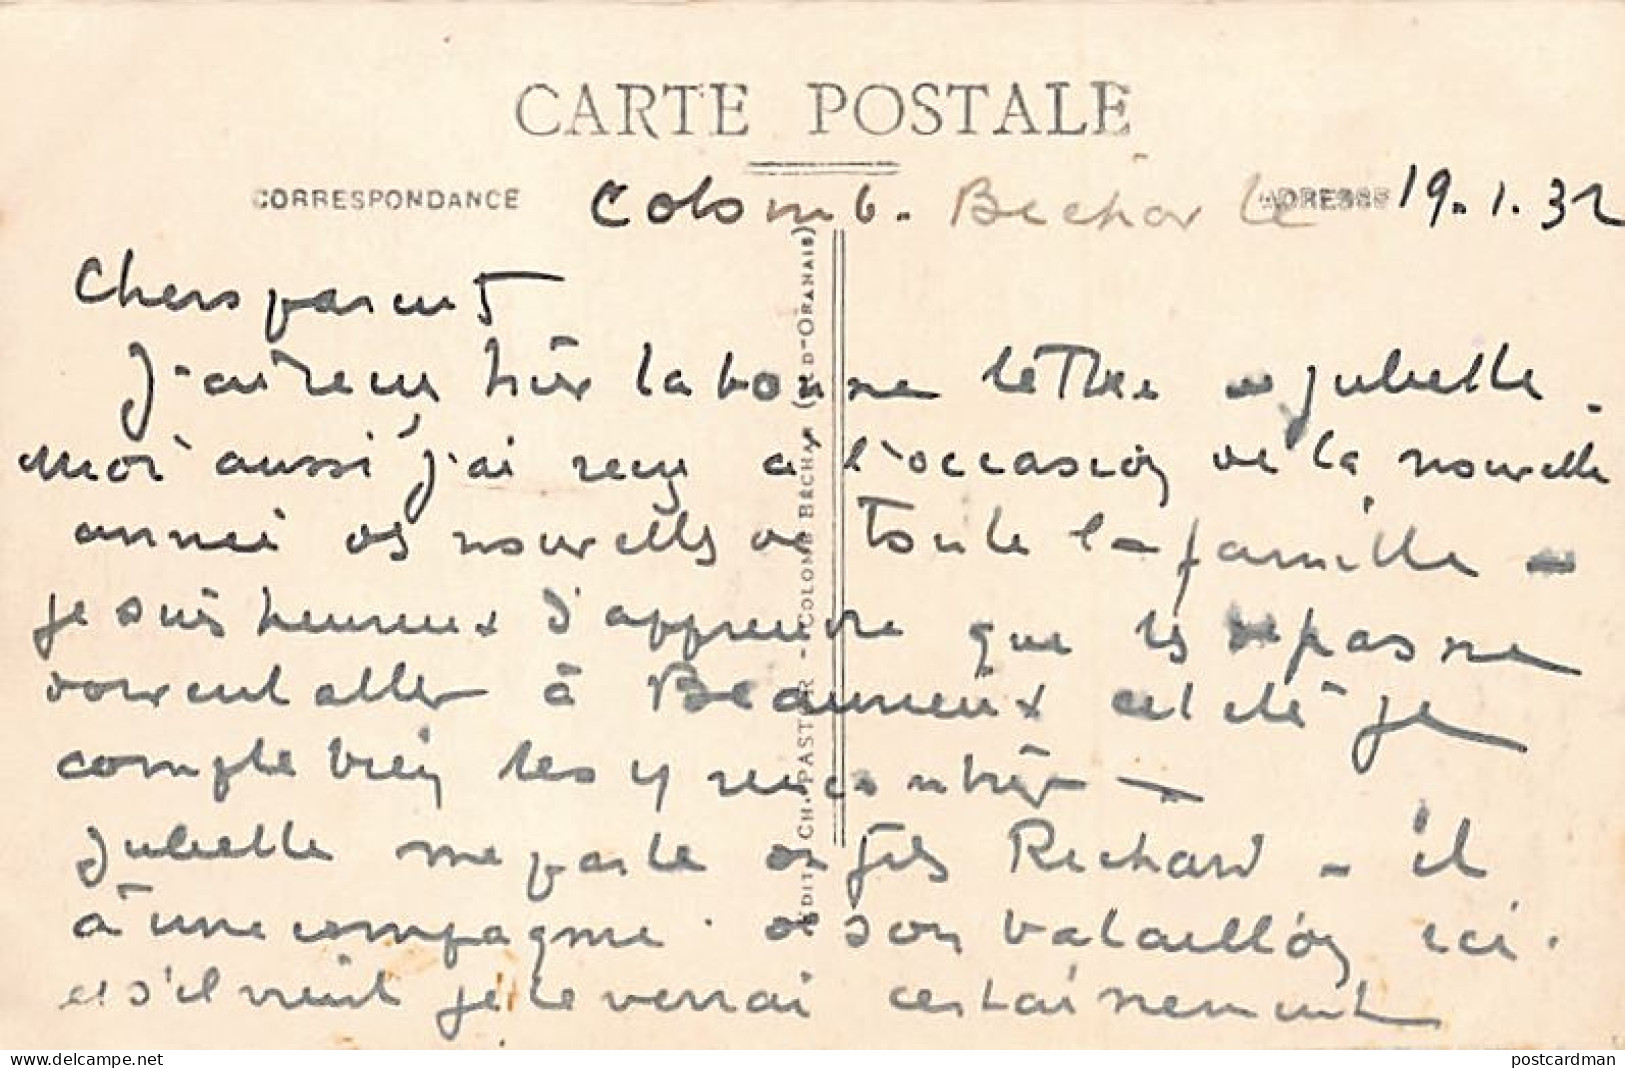 CARTE POSTALE
CORRESPONDANCE
ADRESSE
Colomb. Béchar le 19.1.32
Chers parents
J'ai reçu hier la bonne lettre de Juliette.
Moi aussi j'ai reçu à l'occasion de la nouvelle
année des nouvelles de toute la famille -
je suis heureux d'apprendre que les
doivent aller à Beaumeux cet été je
compte bien les y rencontrer -
Juliette me parle du fils Richard - il
a une compagnie de son bataillon ici.
et s'il vient je le verrai certainement
EDIT. CH. PASTOR - COLOMB BÉCHAR (SUD-ORANAIS)
postcardman